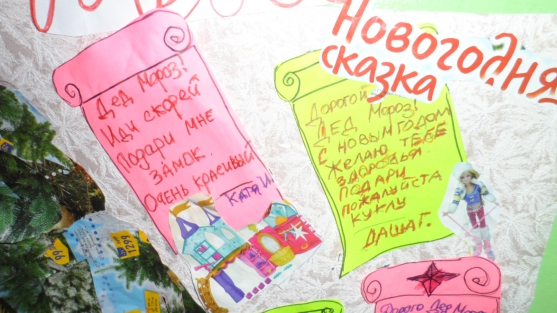 Новогодняя
сказка
Дед Мороз!
Иди скорей
Подари мне
замок.
Очень красивый
Катя
Дорогой
Дед Мороз!
С новым годом
Желаю тебе
здоровья
подари
пожалуйста
куклу
Даша Г.
1299
Дорого Дед Мороз